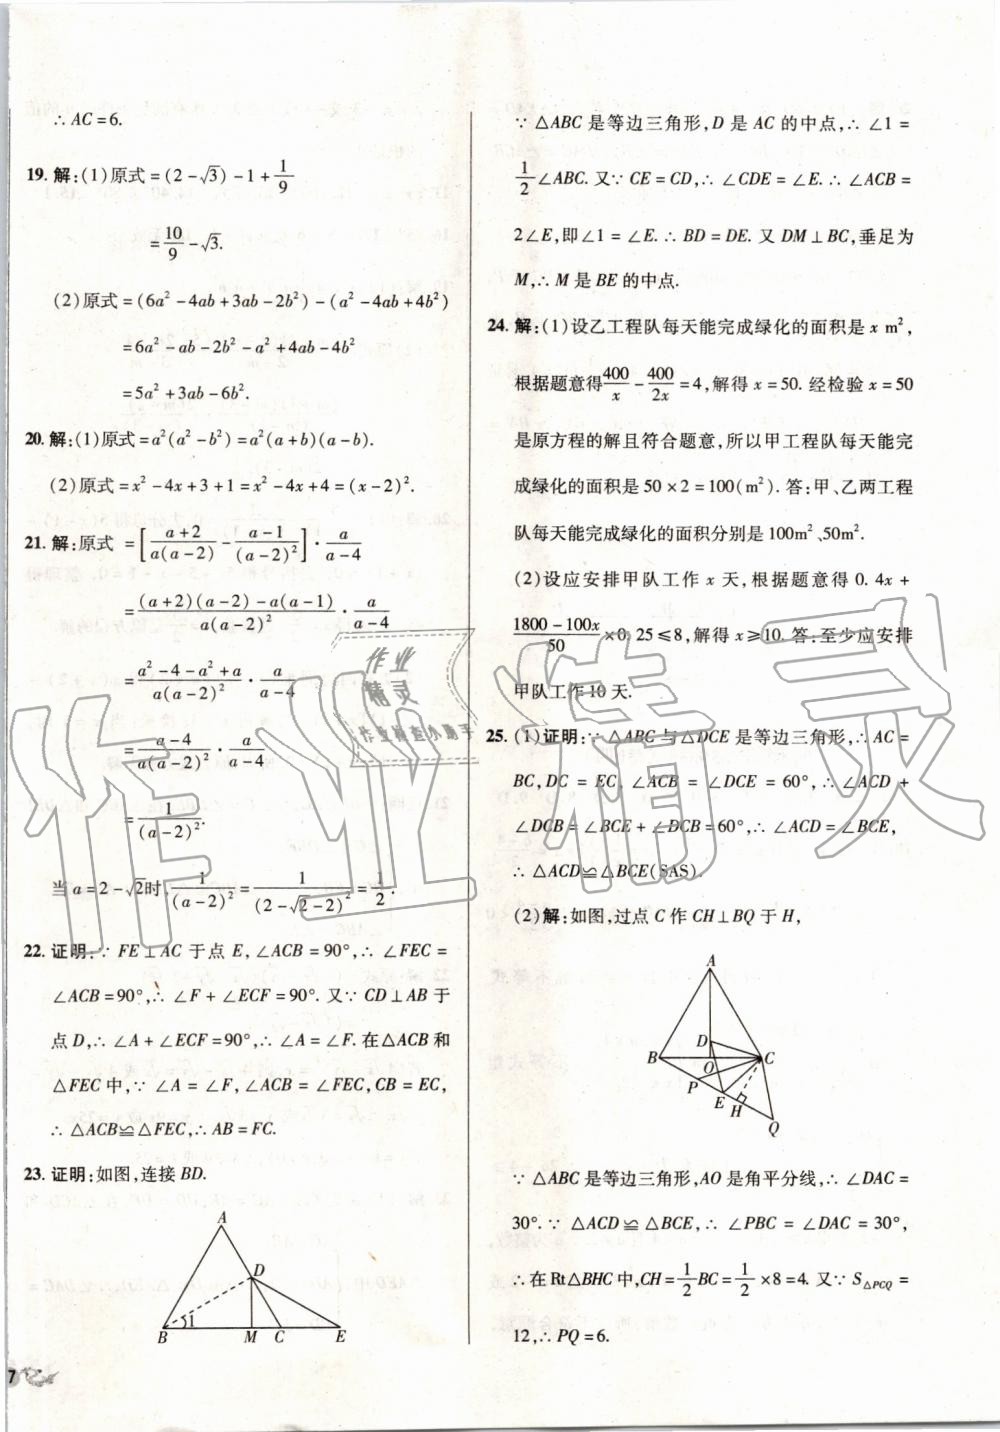 ∴ AC = 6.
19. 解:(1)原式 = (2 - √3) - 1 + 1/9
= 10/9 - √3.
(2)原式 = (6a² - 4ab + 3ab - 2b²) - (a² - 4ab + 4b²)
= 6a² - ab - 2b² - a² + 4ab - 4b²
= 5a² + 3ab - 6b².
20. 解:(1)原式 = a²(a² - b²) = a²(a + b)(a - b).
(2)原式 = x² - 4x + 3 + 1 = x² - 4x + 4 = (x - 2)².
21. 解:原式 = [(a+2)/(a(a-2)) - (a-1)/(a-2)²] · a/(a-4)
= ((a+2)(a-2) - a(a-1))/(a(a-2)²) · a/(a-4)
= (a² - 4 - a² + a)/(a(a-2)²) · a/(a-4)
= (a-4)/(a(a-2)²) · a/(a-4)
= 1/(a-2)².
当 a = 2 - √2时, 1/(a-2)² = 1/(2-√2-2)² = 1/2.
22. 证明:∵ FE⊥AC 于点 E, ∠ACB = 90°, ∴ ∠FEC =
∠ACB = 90°, ∴ ∠F + ∠ECF = 90°. 又∵ CD⊥AB 于
点 D, ∴ ∠A + ∠ECF = 90°, ∴ ∠A = ∠F. 在△ACB 和
△FEC 中, ∵ ∠A = ∠F, ∠ACB = ∠FEC, CB = EC,
∴ △ACB≌△FEC, ∴ AB = FC.
23. 证明:如图,连接 BD.
A
D
1
B M C E
7
∵ △ABC 是等边三角形, D 是 AC 的中点, ∴ ∠1 =
1/2∠ABC. 又∵ CE = CD, ∴ ∠CDE = ∠E. ∴ ∠ACB =
2∠E, 即∠1 = ∠E. ∴ BD = DE. 又 DM⊥BC, 垂足为
M, ∴ M 是 BE 的中点.
24. 解:(1)设乙工程队每天能完成绿化的面积是 x m²,
根据题意得 400/x - 400/2x = 4, 解得 x = 50. 经检验 x = 50
是原方程的解且符合题意,所以甲工程队每天能完
成绿化的面积是 50 × 2 = 100(m²). 答:甲、乙两工程
队每天能完成绿化的面积分别是 100m²、50m².
(2)设应安排甲队工作 x 天,根据题意得 0. 4x +
(1800 - 100x)/50 × 0. 25 ≤ 8, 解得 x ≥ 10. 答:至少应安排
甲队工作 10 天.
25. (1)证明:∵ △ABC 与△DCE 是等边三角形, ∴ AC =
BC, DC = EC, ∠ACB = ∠DCE = 60°, ∴ ∠ACD +
∠DCB = ∠BCE + ∠DCB = 60°, ∴ ∠ACD = ∠BCE,
∴ △ACD≌△BCE(SAS).
(2)解:如图,过点 C 作 CH⊥BQ 于 H,
A
D
B O C
P
E
H
Q
∵ △ABC 是等边三角形, AO 是角平分线, ∴ ∠DAC =
30°. ∵ △ACD≌△BCE, ∴ ∠PBC = ∠DAC = 30°,
∴ 在 Rt△BHC 中, CH = 1/2 BC = 1/2 × 8 = 4. 又∵ S△PCQ =
12, ∴ PQ = 6.
作业精灵
作业
精灵
作业检查小助手